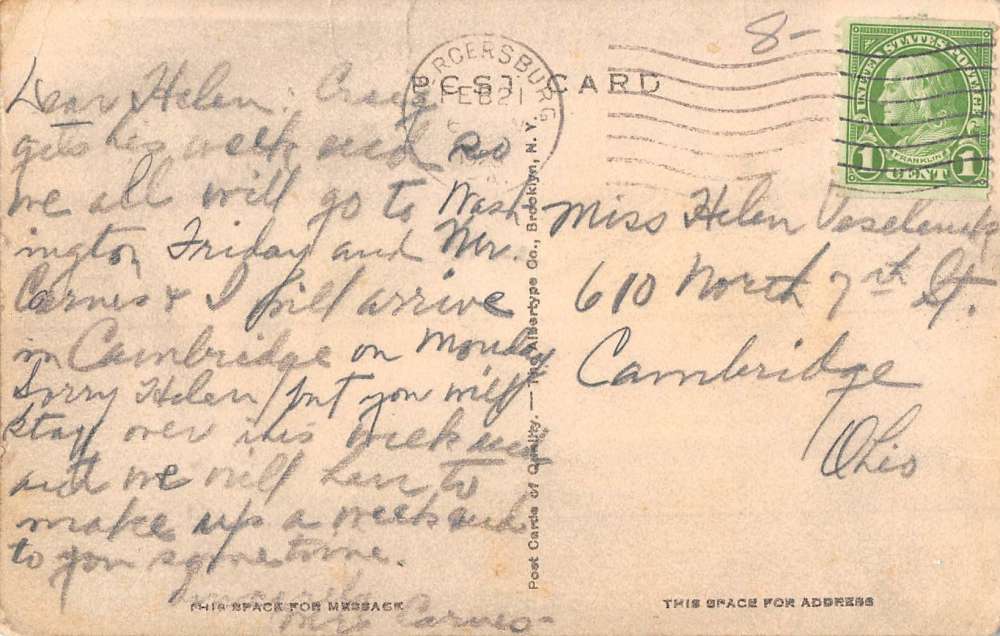 8-
POST CARD
MERCERSBURG
FEB 21
UNITED STATES POSTAGE
FRANKLIN
1 CENT 1
Dear Helen: Craig
gets his week end so
we all will go to Wash
ington Friday and Mr.
Carnes & I will arrive
in Cambridge on Monday
Sorry Helen, but you will
stay over this week end
and we will have to
make up a week end
to you sometime.
Mrs Carnes-
Post Cards of Quality. — The Albertype Co., Brooklyn, N. Y.
Miss Helen
610 North 7th St.
Cambridge
Ohio
THIS SPACE FOR MESSAGE
THIS SPACE FOR ADDRESS